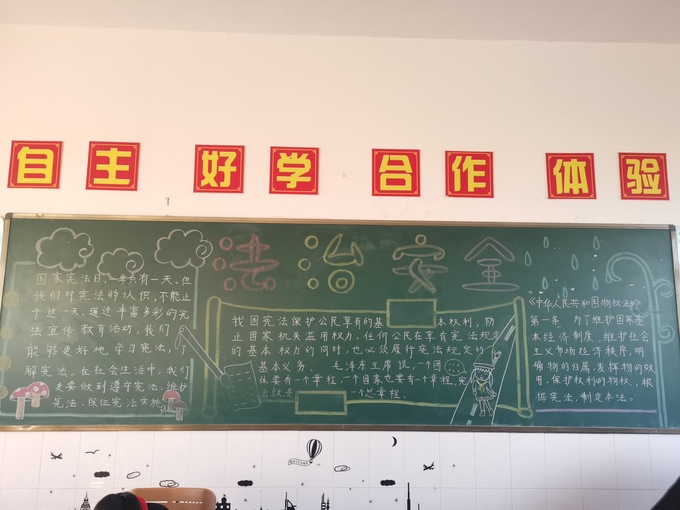 自主 好学 合作 体验
法治安全
国家宪法日,一年只有一天,但
我们对宪法的认识,不能止
于这一天,通过丰富多彩的宪
法宣传教育活动,我们
能够更好地学习宪法,了
解宪法。在社会生活中,我们
更要做到遵守宪法,维护
宪法,保证宪法实施
我国宪法保护公民享有的基本权利,防
止国家机关滥用权力,任何公民在享有宪法规定
的基本权力的同时,也必须履行宪法规定的
基本义务。毛泽东主席说,一个团
体要有一个章程,一个国家也要有一个章程,宪
法就是一个总章程,
《中华人民共和国物权法》
第一条 为了维护国家基
本经济制度,维护社会
主义市场经济秩序,明
确物的归属,发挥物的效
用,保护权利的物权,根
据宪法,制定本法。